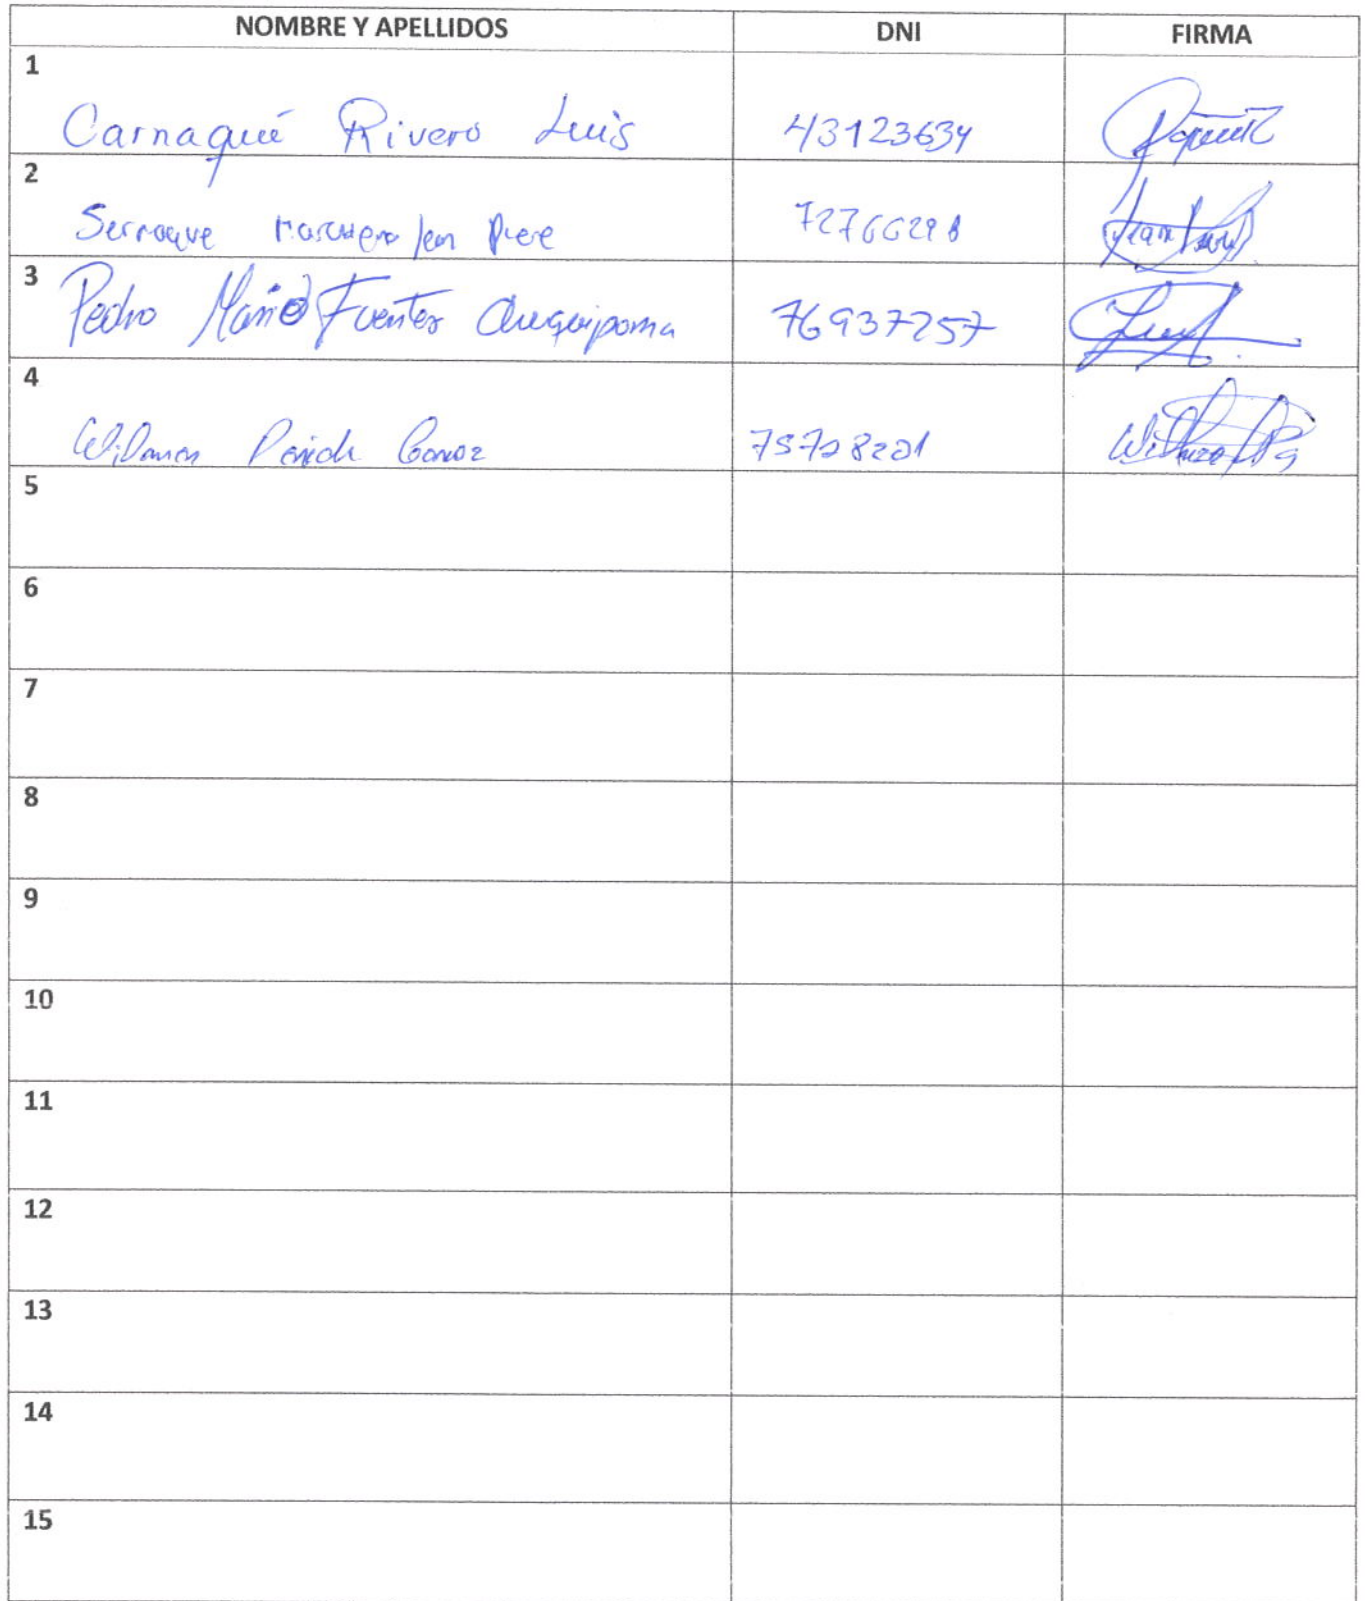 NOMBRE Y APELLIDOS DNI FIRMA
1
Carnaqué Rivero Luis 43123634
2
Serraque Jean Piere 72766298
3
Pedro Mario Fuentes Chuquipoma 76937257
4
75728201
5
6
7
8
9
10
11
12
13
14
15